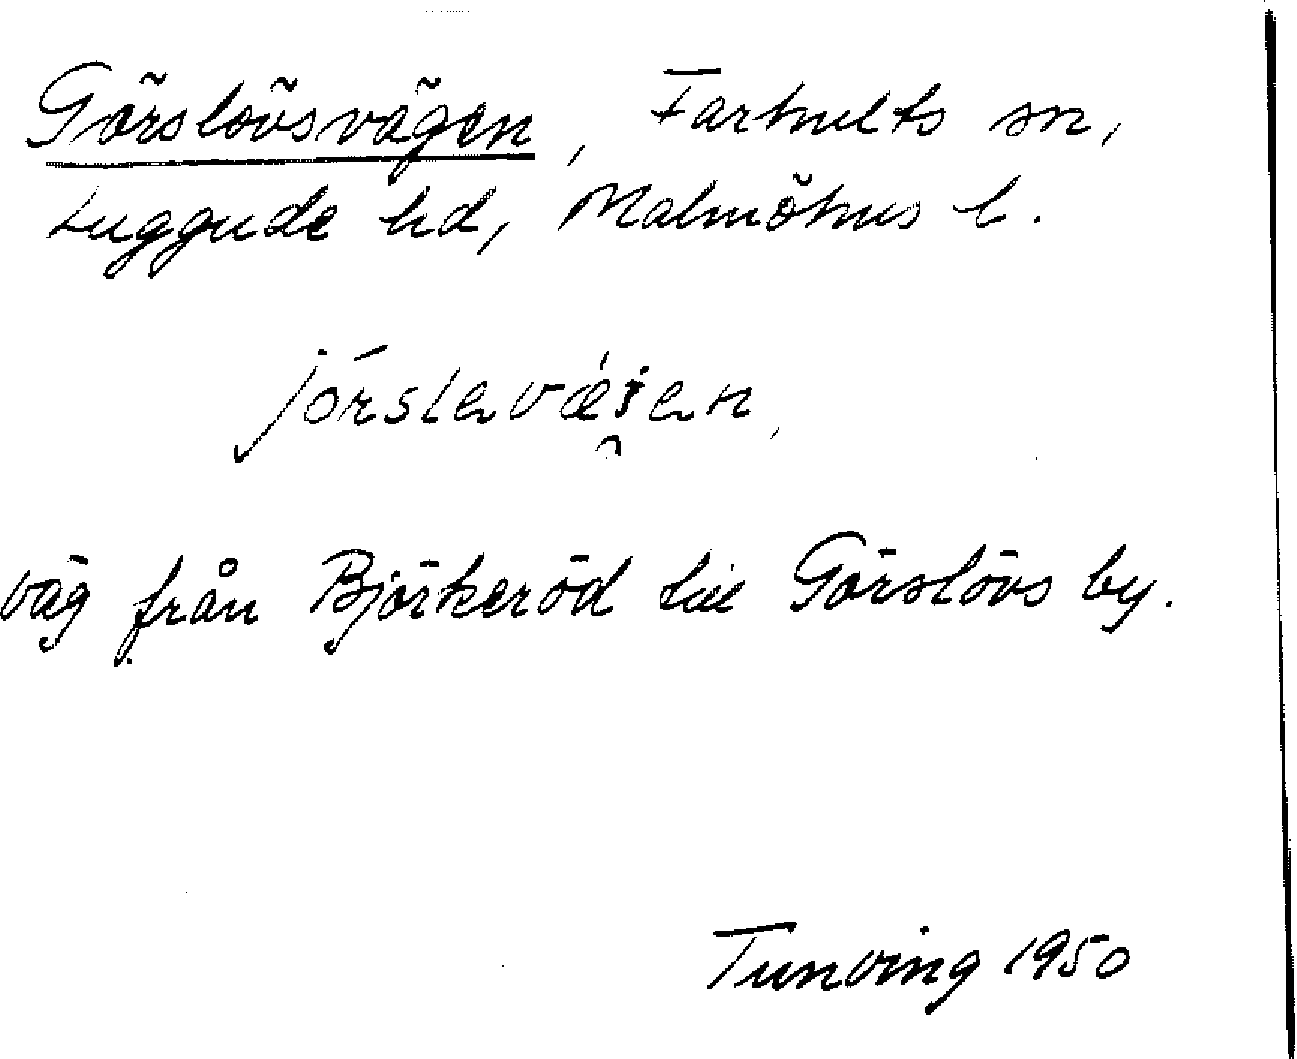 Görslövsvägen, Farhults sn,
Luggude hd, Malmöhus l.
jörslavæ̂i̯en,
väg från Björkeröd till Görslövs by.
Tunving 1950